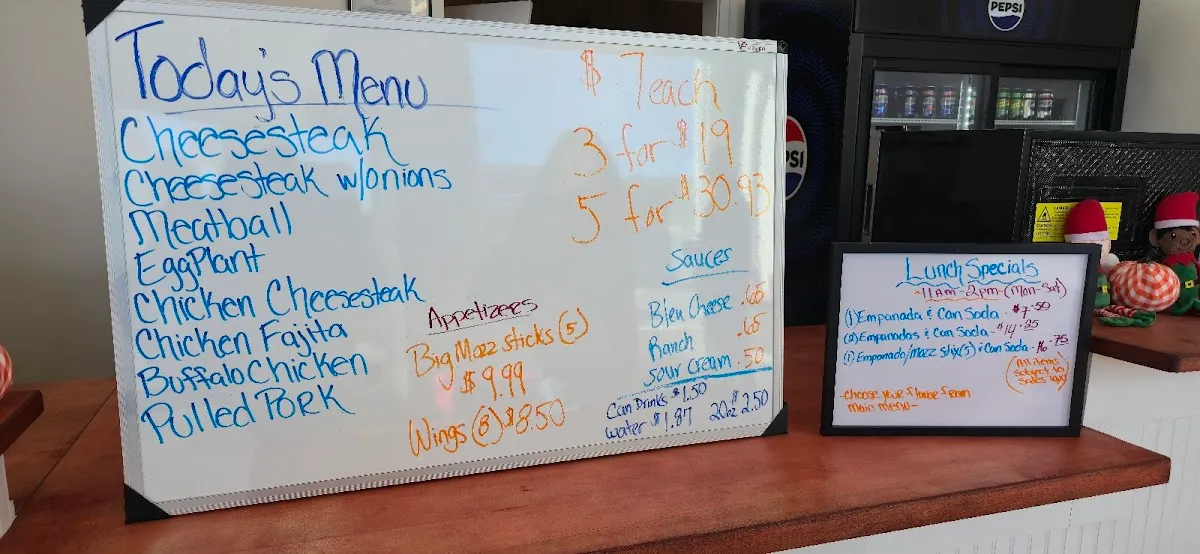 Today's Menu
Cheesesteak
Cheesesteak w/onions
Meatball
EggPlant
Chicken Cheesesteak
Chicken Fajita
Buffalo Chicken
Pulled Pork
$ 7 each
3 for $19
5 for $30.93
Appetizers
Big Mozz Sticks (5)
$9.99
Wings (8) $8.50
Sauces
Bleu Cheese .65
Ranch .65
Sour Cream .50
Can Drinks $1.50
water $1.87 20oz $2.50
PEPSI
PSI
Lunch Specials
11AM-2pm-(Mon-Sat)
(1) Empanada & Can Soda - $7.50
(2) Empanadas & Can Soda - $14.25
(1) Empanada/mozz stix(5) & Can Soda - 16.75
(All items
subject to
Sales tax)
-choose your flavor from
main menu-